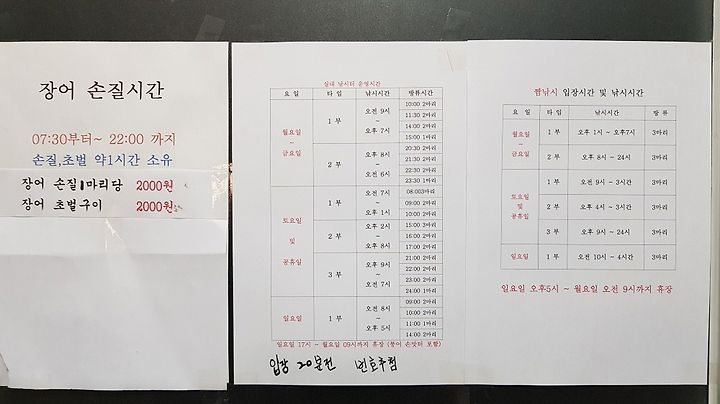 장어 손질시간
07:30부터~ 22:00 까지
손질,초벌 약1시간 소유
장어 손질1마리당 2000원
장어 초벌구이 2000원
실내 낚시터 운영시간
요 일 타 임 낚시시간 방류시간
월요일 ~ 금요일
1 부 오전 9시 ~ 오후 7시
10:00 2마리
11:30 2마리
14:00 2마리
15:00 1마리
2 부 오후 8시 ~ 오전 6시
20:30 2마리
21:30 2마리
22:30 2마리
23:30 1마리
토요일 및 공휴일
1 부 오전 7시 ~ 오후 1시
08:00 3마리
09:00 2마리
10:00 2마리
2 부 오후 2시 ~ 오후 8시
15:00 3마리
16:00 2마리
17:00 2마리
3 부 오후 9시 ~ 오전 7시
21:00 2마리
22:00 2마리
23:00 2마리
24:00 1마리
일요일
1 부 오전 8시 ~ 오후 5시
09:00 2마리
10:00 2마리
11:00 1마리
14:00 2마리
일요일 17시 ~ 월요일 09시까지 휴장 (붕어 손맛터 포함)
입장 20분전 번호추첨
짬낚시 입장시간 및 낚시시간
요 일 타 임 낚시시간 방 류
월요일 ~ 금요일
1 부 오후 1시 ~ 오후7시 3마리
2 부 오후 8시 - 24시 3마리
토요일 및 공휴일
1 부 오전 9시 - 3시간 3마리
2 부 오후 4시 ~ 3시간 3마리
3 부 오후 9시 ~ 24시 3마리
일요일 1 부 오전 10시 - 4시간 3마리
일요일 오후5시 ~ 월요일 오전 9시까지 휴장